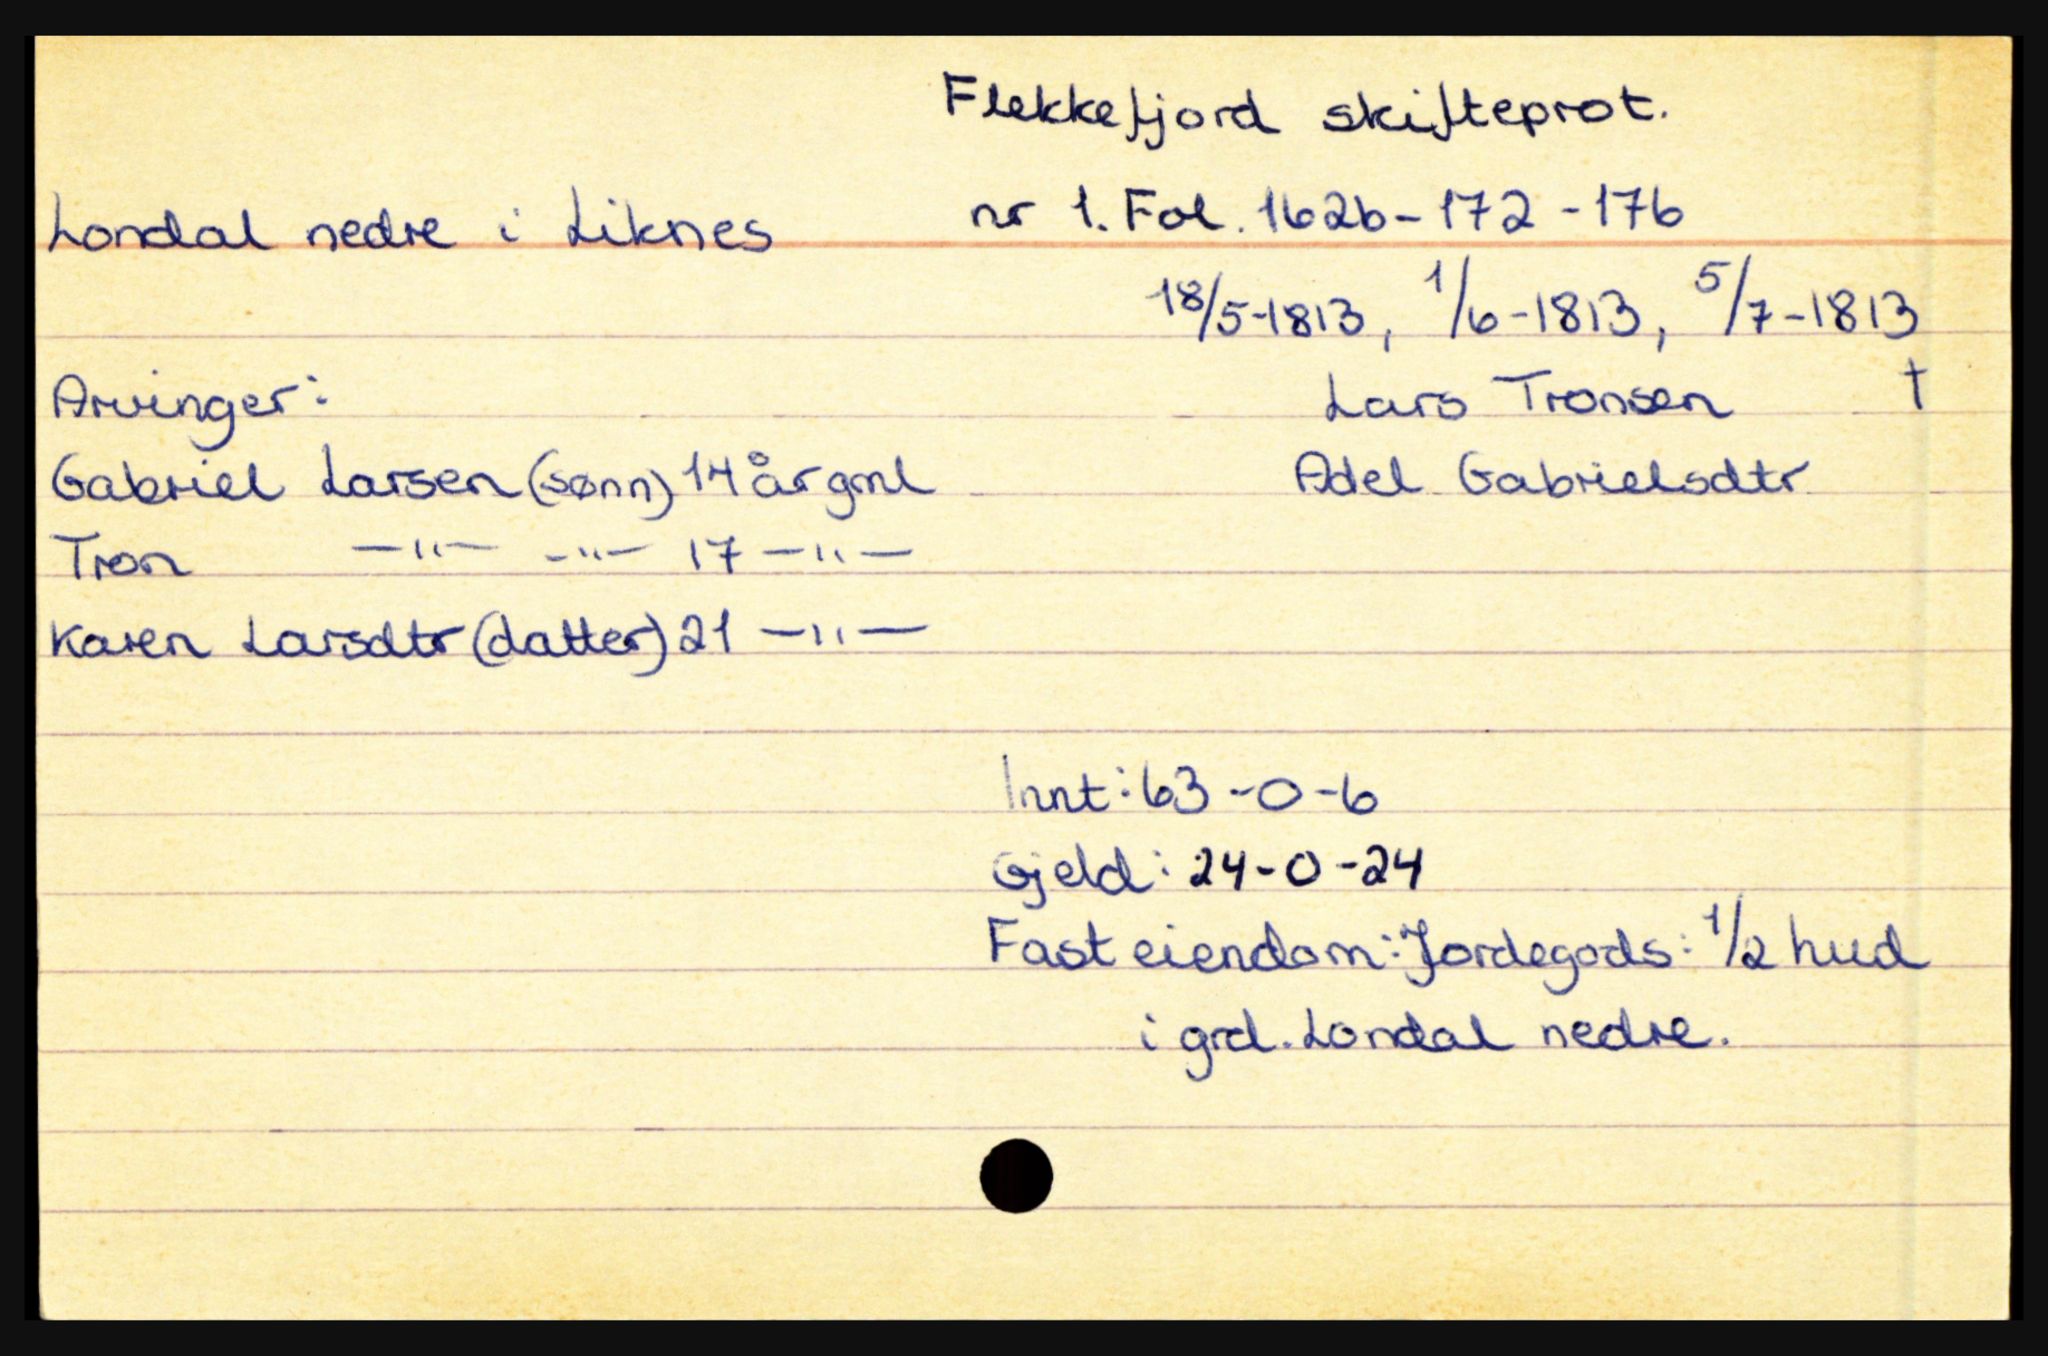 Flekkefjord skifteprot.
Londal nedre i Liknes nr 1. Fol. 162b-172-176
18/5-1813, 1/6-1813, 5/7-1813
Arvinger: Lars Tronsen †
Gabriel Larsen (sønn) 14 år gml Adel Gabrielsdtr
Tron —"— —"— 17 —"—
Karen Larsdtr (datter) 21 —"—
Innt: 63-0-6
Gjeld: 24-0-24
Fast eiendom: Jordegods: 1/2 hud
i grd. Londal nedre.